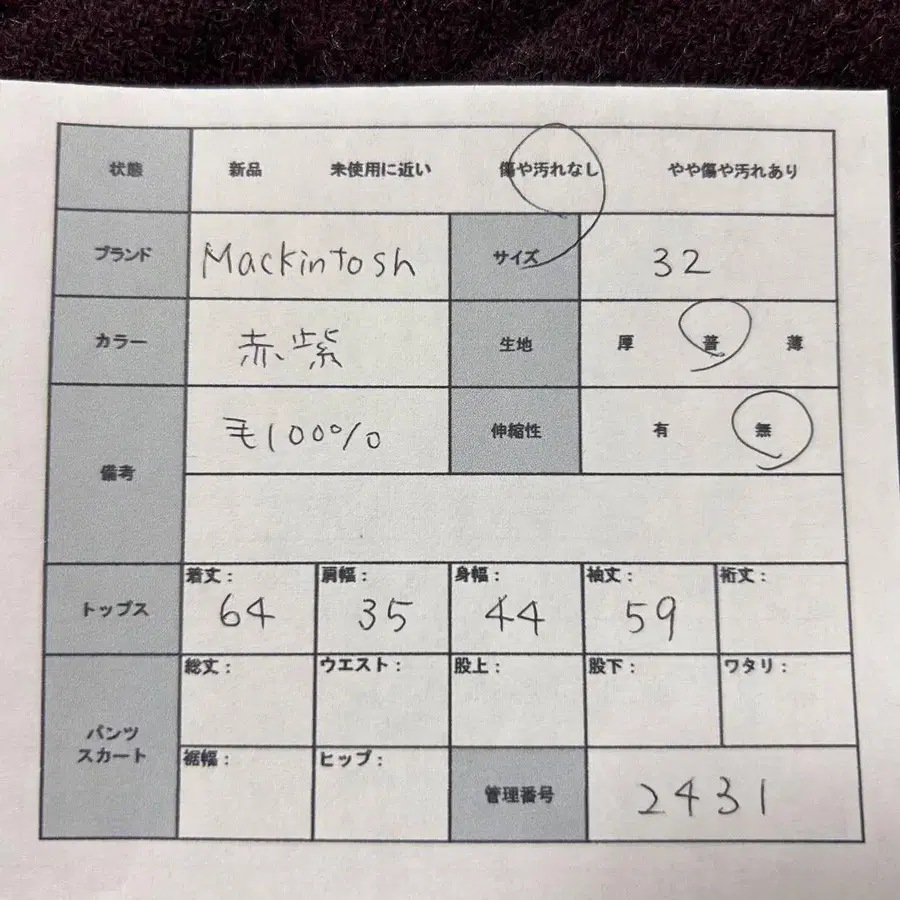 状態 新品 未使用に近い 傷や汚れなし やや傷や汚れあり
ブランド Mackintosh サイズ 32
カラー 赤紫 生地 厚 普 薄
備考 毛100% 伸縮性 有 無
トップス 着丈: 64 肩幅: 35 身幅: 44 袖丈: 59 裄丈:
パンツ
スカート
総丈: ウエスト: 股上: 股下: ワタリ:
裾幅: ヒップ: 管理番号 2431